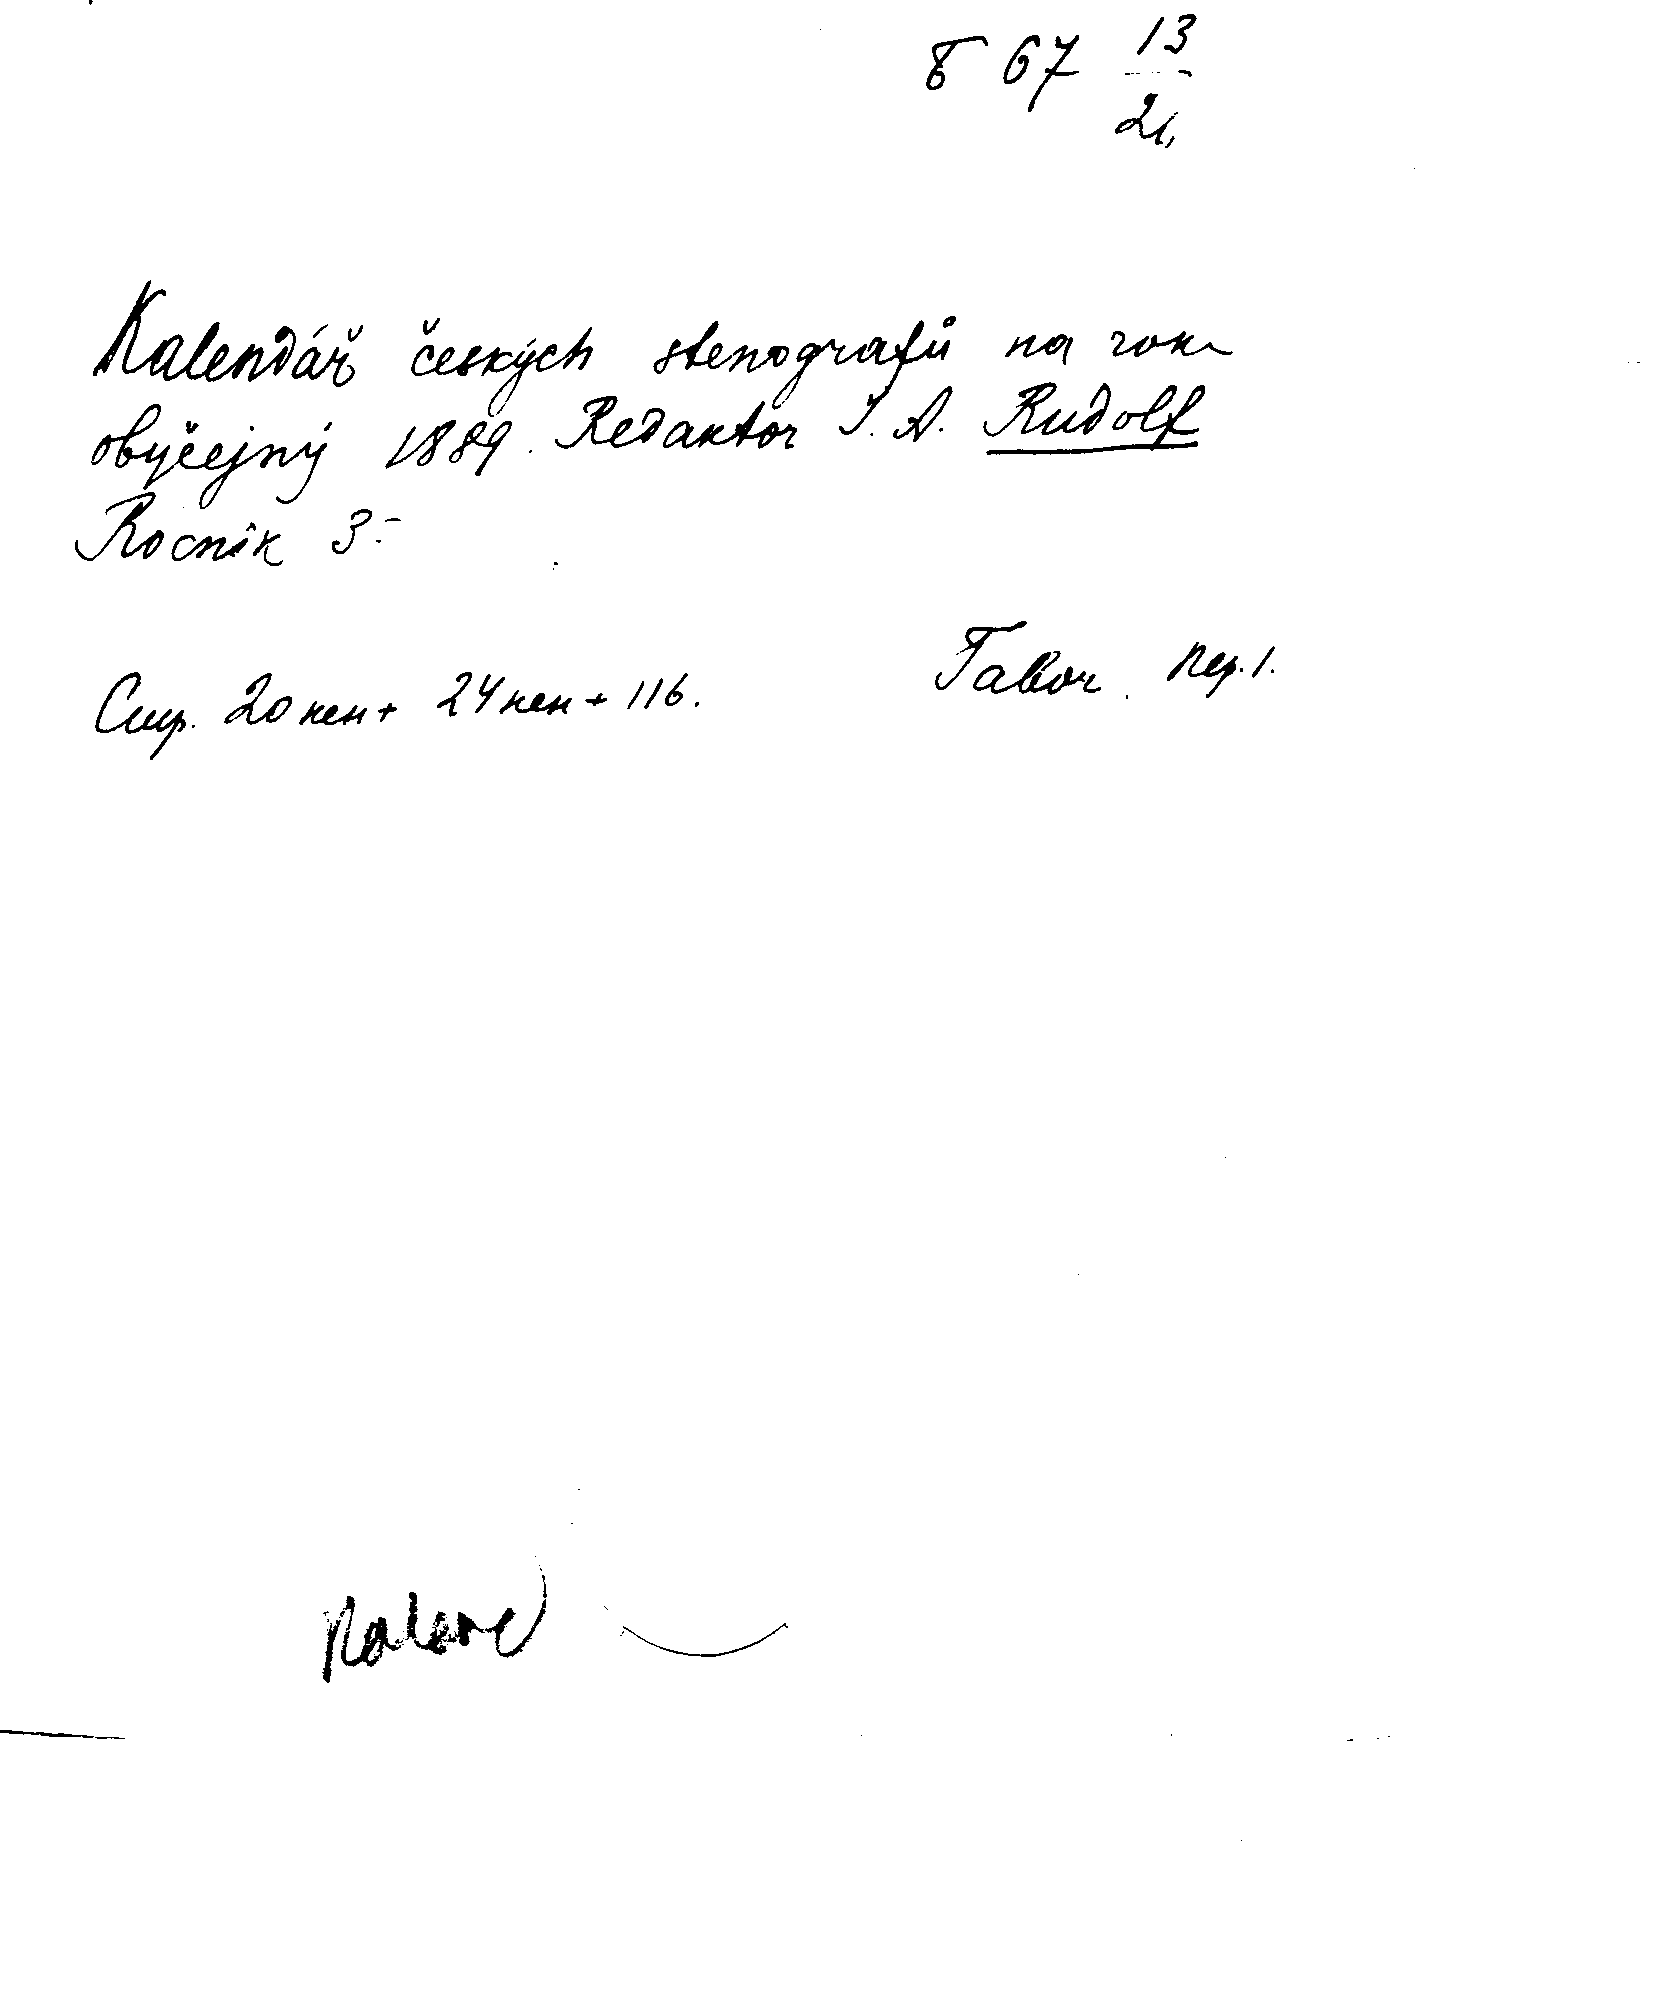 Б 67 13
21
Kalendář českých stenografů na rok
obyčejný 1889. Redaktor I. A. Rudolf
Ročnik 3-
Tabor. пер. 1.
Стр. 20 нен + 24 нен + 116.